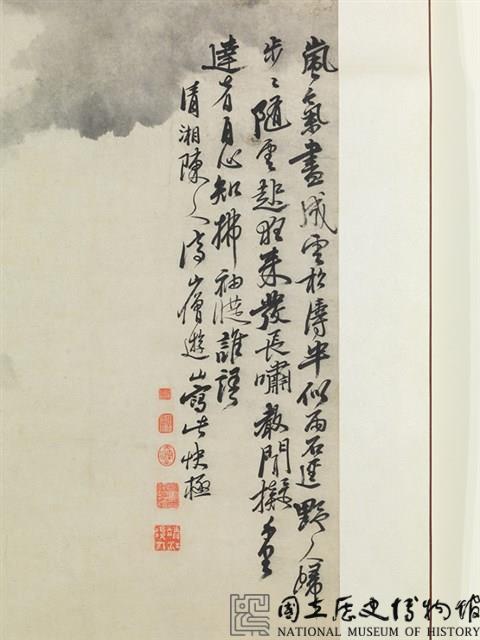 嵐氣盡成雲松濤半似雨石逕野人歸
步〻隨雲起狂來發長嘯聲聞擬千里
達者自心知拂袖從誰語
清湘陳人濟山僧遊山寫此快極
國立歷史博物館
NATIONAL MUSEUM OF HISTORY